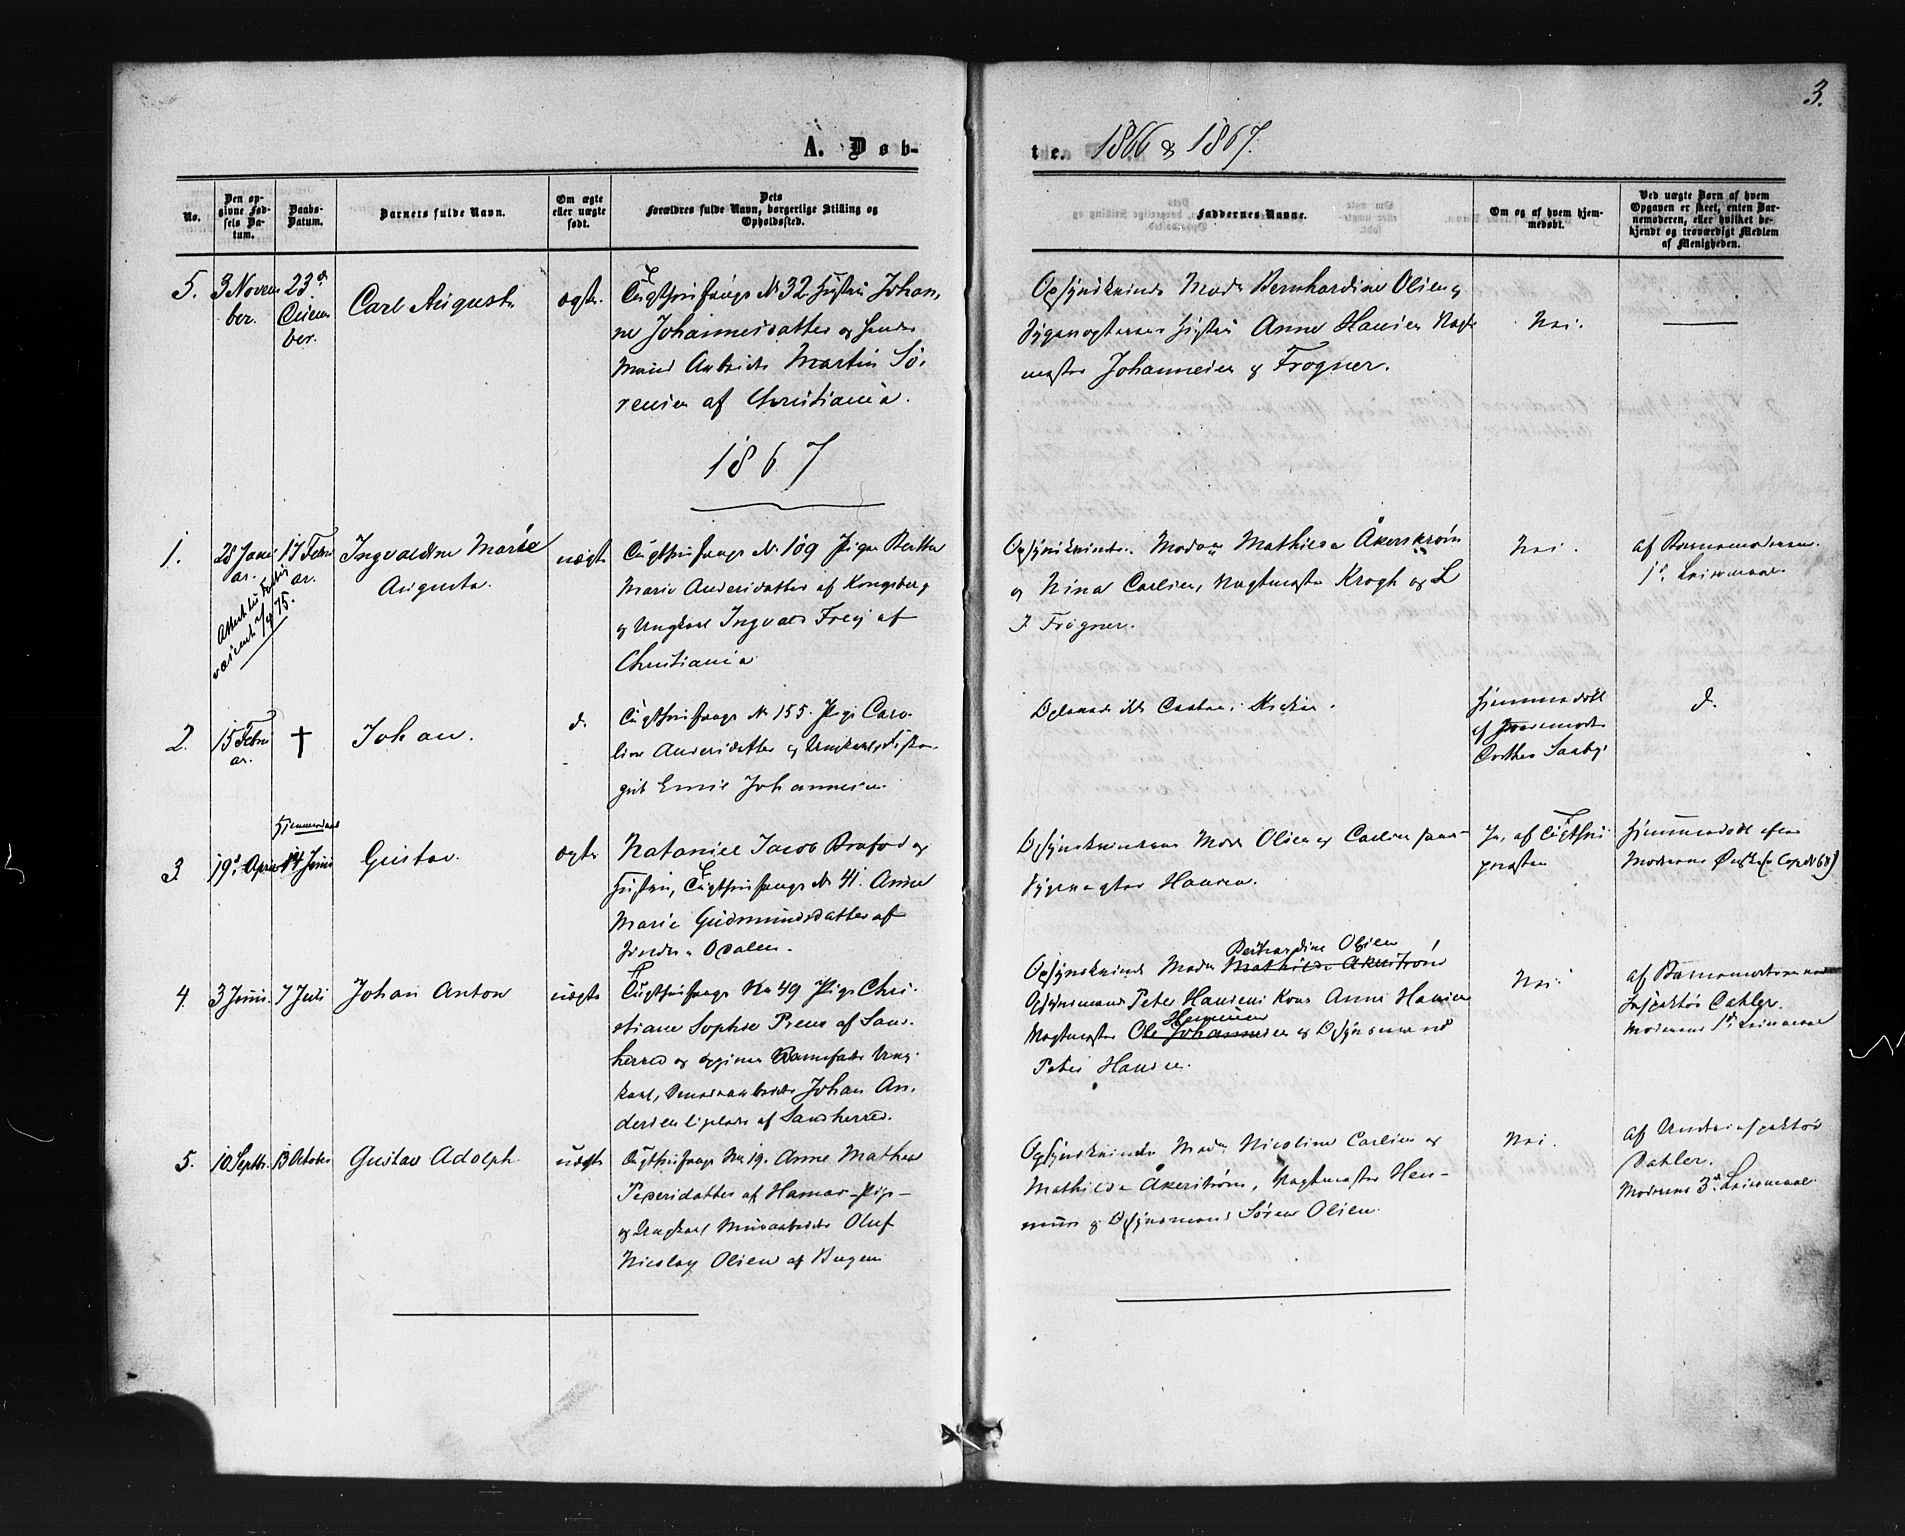 3.
A. Døb-
te. 1866 & 1867.
No.
Den op-
givne Fød-
sels Da-
tum.
Daabs-
Datum.
Barnets fulde Navn.
Om ægte
eller uægte
født.
Dets
Forældres fulde Navn, borgerlige Stilling og
Opholdssted.
Faddernes Navne.
Om og af hvem hjem-
medøbt.
Ved uægte Børn af hvem
Opgaven er skeet, enten Bar-
nemoderen, eller hvilket be-
kjendt og troværdigt Medlem
af Menigheden.
5.
3 Novem
ber.
23de
Decem
ber.
Carl August
ægte.
Tugthusfange No 32. Hustru Johan,
ne Johannesdatter og hendes
Mand Arbeider Martin Sø,
rensen af Christiania.
Opsynskvinde Mada Bernhardine Olsen og
Sygevogterens Hustru Anne Hansen Vagt
mester Johannesen og Frogner.
Nei.
1867
1.
28 Janu
ar.
17 Febru
ar.
Ingvaldine Marie
Augusta.
uægte
Tugthusfange No 109 Pige Berthe
Marie Andersdatter af Kongsberg
og Ungkarl Ingvald Frey af
Christiania
Opsynskvinde. Madam Mathilde Åkerstrøm
og Nina Carlsen, Vagtmester Krogh og L
J. Frogner.
Nei.
af Barnemoderen.
1ste Leiermaal.
2.
15 Febru
ar.
†
Johan.
d.
Tugthusfange No 155. Pige Caro-
line Andersdatter og Ungkarl,
gut Emil Johannesen
i Kirken.
Hjemmedøbt
af Jordemoder
Dorthea Saaby.
d.
3.
19de April
Hjemmedøbt
14 Juni
Gustav.
ægte
Nataniel Jacob Brafod og
Hustru, Tugthusfange No 41. Anne
Marie Gudmundsdatter af
Opsynskvinderne Mada Olsen og Carlsen samt
Sygevogter Hansen.
Ja, af Tugthus
præsten
Hjemmedøbt efter
Moderens Ønske
4.
3 Juni.
7 Juli
Johan Anton
uægte
Tugthusfange No 49 Pige Chri-
stiane Sophie Preus af San-
herred og opgiven Barnefader Ung-
karl, Johan An,
dersen ligeledes af Sandherred.
Bernhardine Olsen
Opsynskvinde Mada Mathilde Åkerstrøm
Opsynsmand Peter Hansens Kone Anne Hansen
Vagtmester Ole Johannesen og Opsynsmand
Peter Hansen.
Nei.
af Barnemoderen
Inspektør Dahler.
Moderens 1ste Leiermaal
5.
10 Septbr.
13 October
Gustav Adolph.
uægte
Tugthusfange No 19. Anne Mathea
Pedersdatter af Hamar – Pige –
og Ungkarl Murarbeider Oluf
Nicolay Olsen af
Opsynskvinde Mada Nicoline Carlsen og
Mathilde Åkerstrøm, Vagtmester Hen-
og Opsynsmand Søren Olsen.
Nei.
af Underinspektør
Dahler.
Moderens 3die Leiermaal.